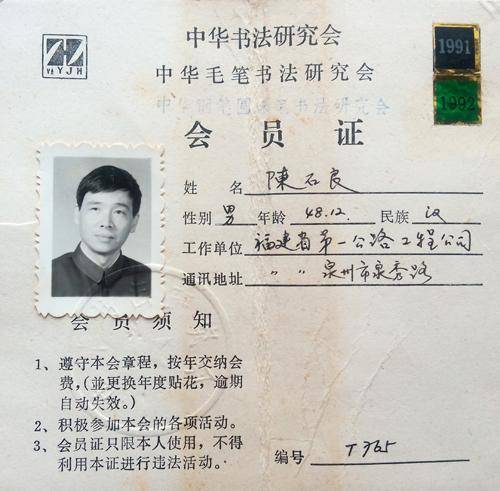 YJH
1991
1992
中华书法研究会
中华毛笔书法研究会
书法研究会
会员证
姓名 陳石良
性别 男 年龄 48.12. 民族 汉
工作单位 福建省第一公路工程公司
通讯地址 〃 〃 泉州市泉秀路
会员须知
1、遵守本会章程，按年交纳会
费，(並更换年度贴花，逾期
自动失效。)
2、积极参加本会的各项活动。
3、会员证只限本人使用，不得
利用本证进行违法活动。
编号 T365